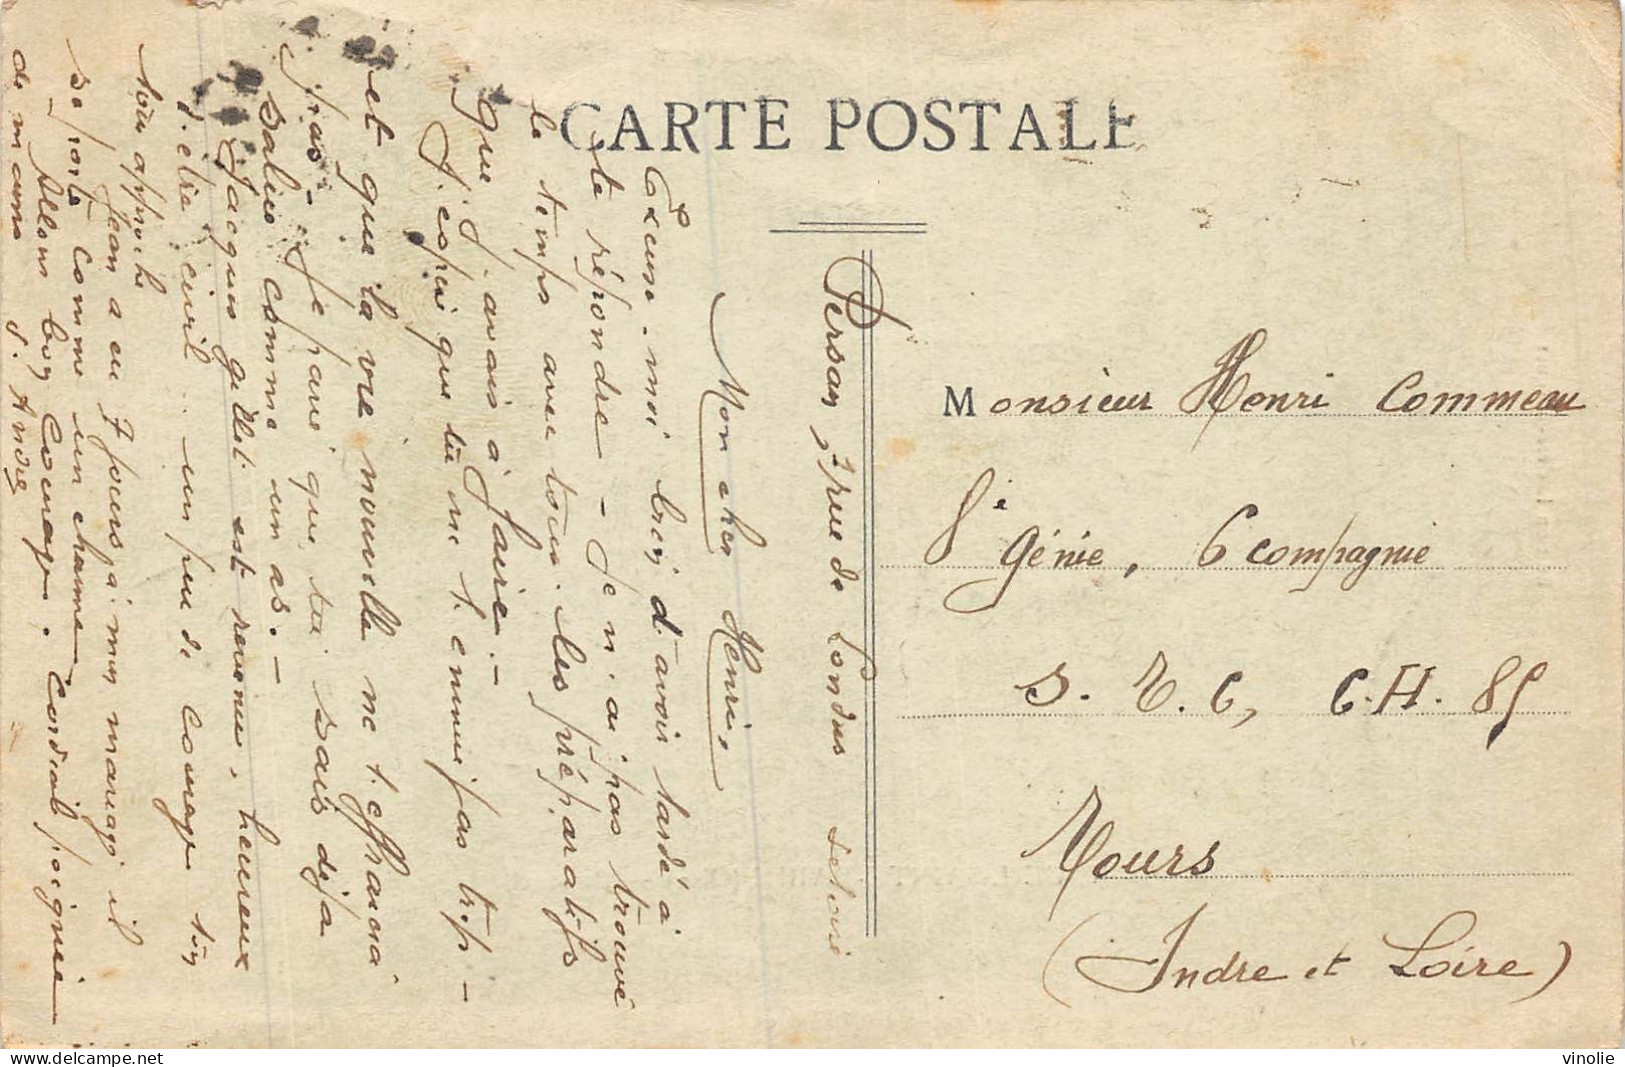 CARTE POSTALE
Persan, 7 rue de Londres
Mon cher Henri,
Excuse-moi bien d'avoir tardé à
te répondre - Je n'ai pas trouvé
le temps avec tous les préparatifs
que j'avais à faire. -
J'espère que tu ne t'ennuie pas trop -
et que la vie nouvelle ne t'effraiera
pas - Je parie que tu sais déja
saluer comme un as. -
Jacques Gillet est revenu, heureux
d'être civil .. un peu de courage ton
tour approche
Jean a eu 7 jours pr mon mariage il
se porte comme un charme
Allons bon courage. Cordiale poignée
de mains J. André
Monsieur Henri Commeau
8e Génie, 6 compagnie
S. T. C, C.H. 85
Tours
(Indre et Loire)
delcampe.net
vinolie